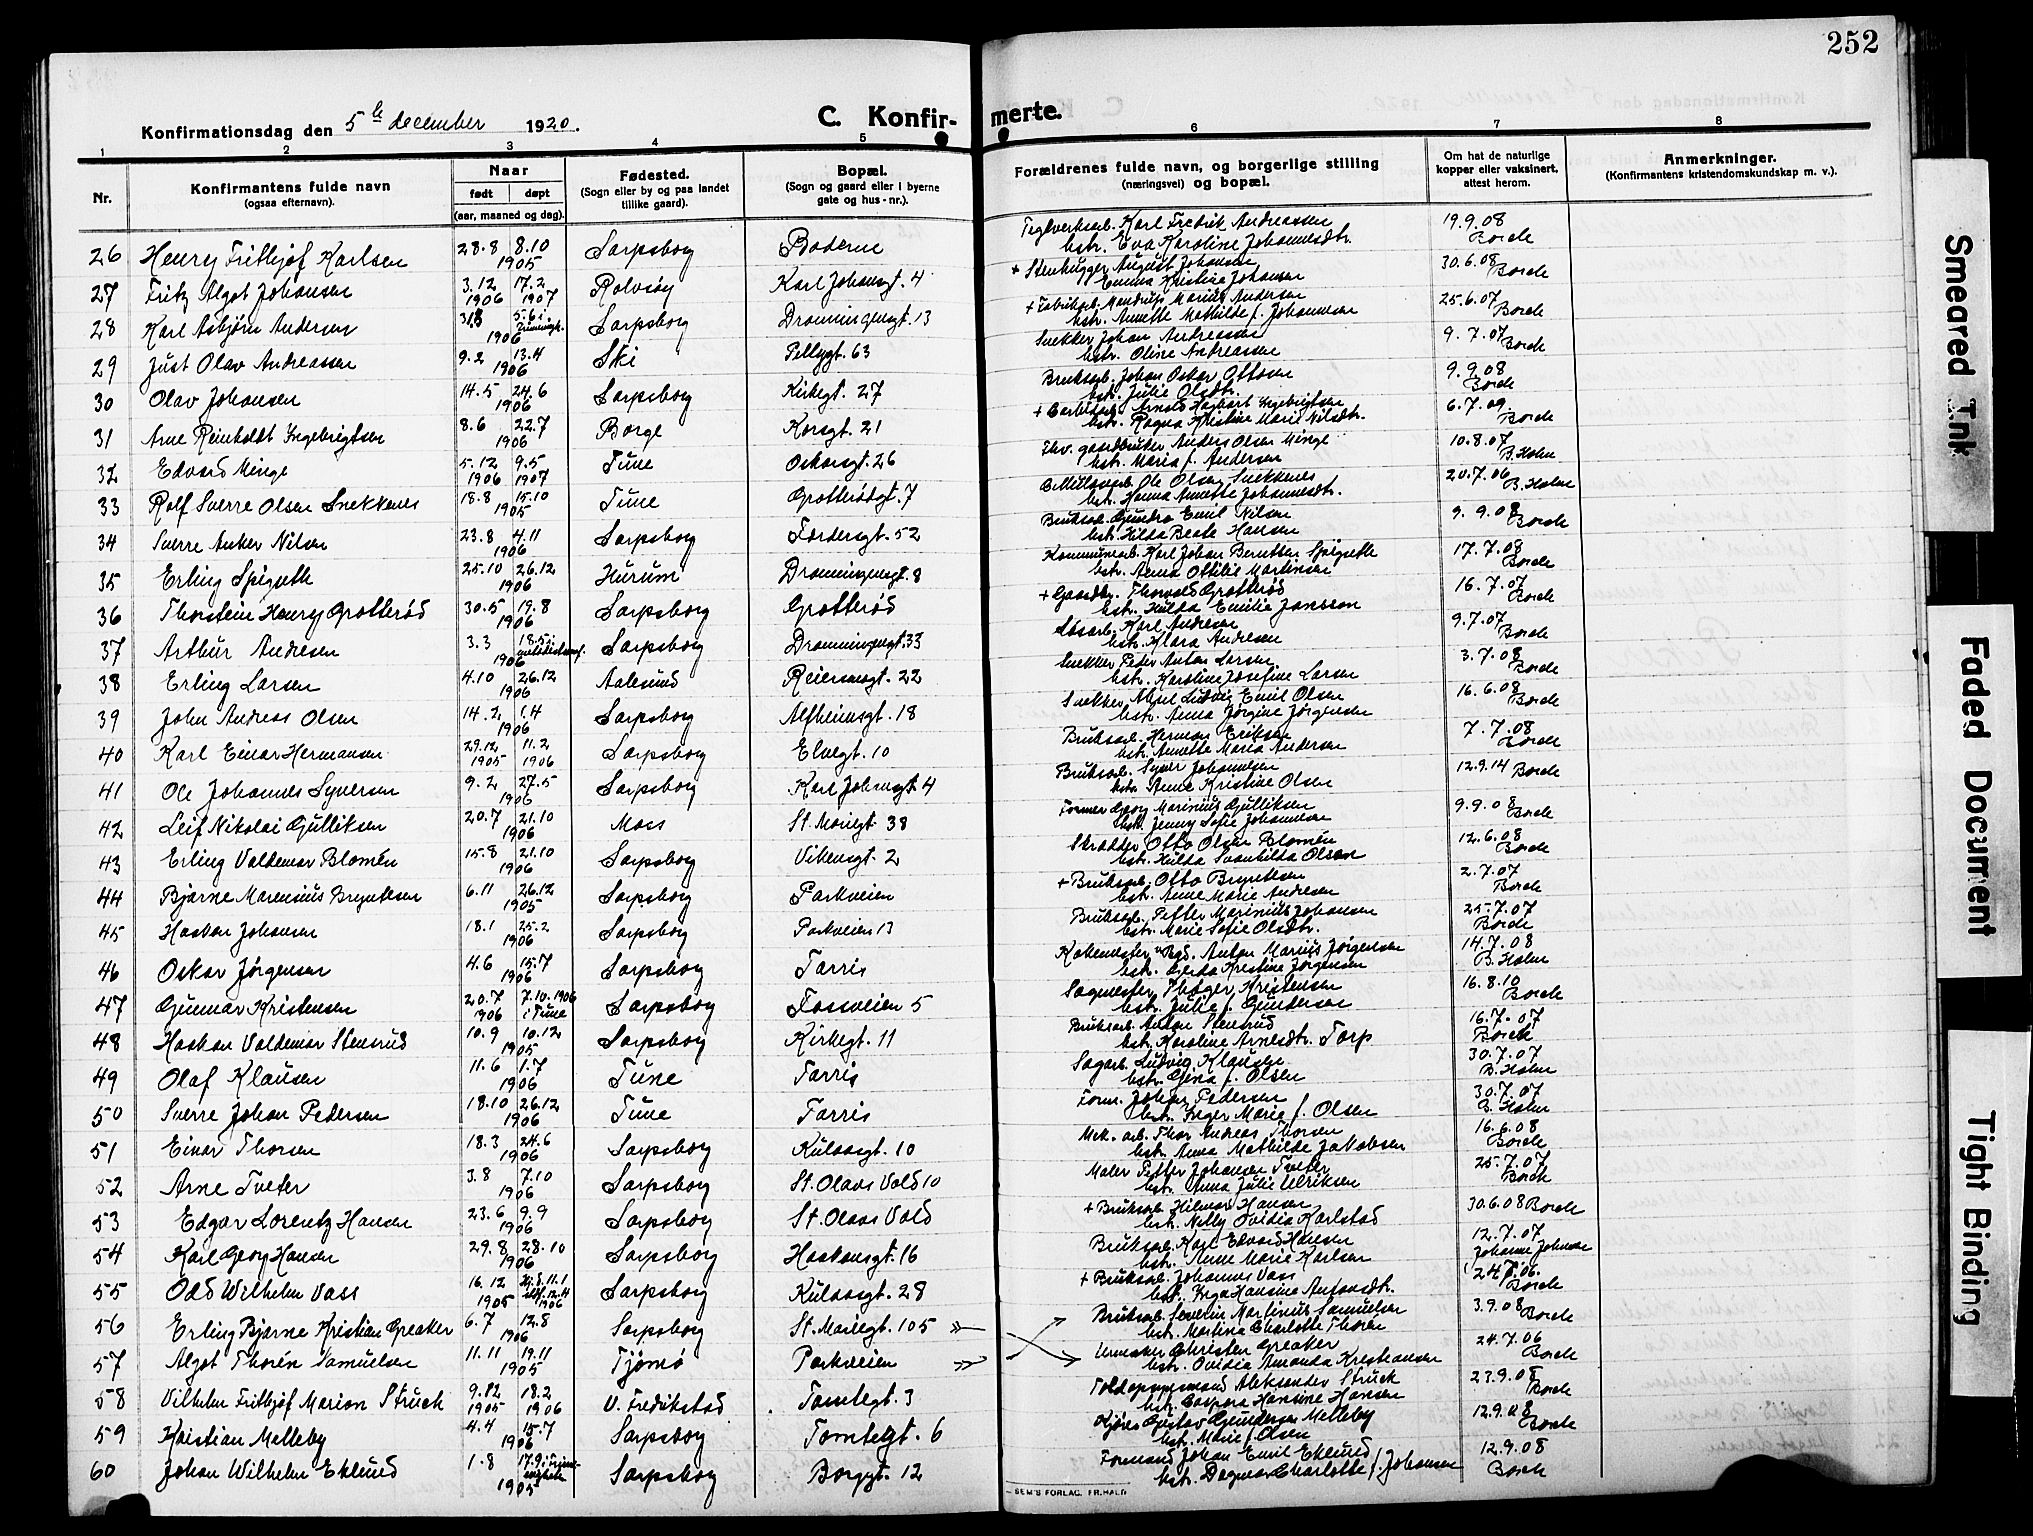 252
Konfirmationsdag den 5te december 1920.
C. Konfir-
merte.
1 2 3 4 5 6 7 8
Nr.
Konfirmantens fulde navn
(ogsaa efternavn).
Naar
født døpt
(aar, maaned og dag).
Fødested.
(Sogn eller by og paa landet
tillike gaard).
Bopæl.
(Sogn og gaard eller i byerne
gate og hus-nr.).
Forældrenes fulde navn, og borgerlige stilling
(næringsvei) og bopæl.
Om hat de naturlige
kopper eller vaksinert,
attest herom.
Anmerkninger.
(Konfirmantens kristendomskundskap m. v.).
26 Henry Frithjof Karlsen 28.8 8.10 1905 Sarpsborg Boderne
Teglverksarb. Karl Fredrik Andreassen 19.9.08
hstr. Eva Karoline Johannesdtr. Borch
27 Fritz Algot Johansen 3.12 1906 17.2 1907 Rolvsøy Karl Johansgt. 4
+ Stenhugger August Johansen 30.6.08 Borch
Emma Kristine Johansen
28 Karl Asbjørn Andersen 1906 Sarpsborg Dronningensgt. 13
+ Fabrikarb. Mandrup Marius Andersen 25.6.07
hstr. Annette Mathilde f. Johannesen Borch
29 Just Olav Andreassen 9.2 13.4 1906 Ski Pellygt. 63
Snekker Johan Andreassen 9.7.07
hstr. Oline Andreassen Borch
30 Olav Johansen 14.5 24.6 1906 Sarpsborg Kirkegt. 27
Bruksarb. Johan Oskar Ottosen 9.9.08
hstr. Julie Olsdtr. Borch
31 Arne Reinholdt Ingebrigtsen 8.6 22.7 1906 Borge Korsgt. 21
+ Arnold Hagbart Ingebrigtsen 6.7.09
hstr. Ragna Kristine Marie Nilsdtr. Borch
32 Edvard Minge 5.12 1906 9.5 1907 Tune Oskarsgt. 26
Fhv. gaardbruker Anders Olsen Minge 10.8.07
hstr. Maria f. Andersen B. Holm
33 Rolf Sverre Olsen Snekkenes 18.8 15.10 1905 Tune Grotterødgt. 7
Ole Olsen Snekkenes 20.7.06 B. Holm
hstr. Hanna Annette Johannesdtr.
34 Sverre Anker Nilsen 23.8 4.11 1906 Sarpsborg Fordersgt. 52
Bruksarb. Gundro Emil Nilsen 9.9.08
hstr. Hilda Beate Hansen Borch
35 Erling Spigseth 25.10 26.12 1906 Hurum Dronningensgt. 8
Kommunearb. Karl Johan Berntsen Spigseth 17.7.08
hstr. Anna Ottilie Martinsen Borch
36 Thorstein Henry Grotterød 30.5 19.8 1906 Sarpsborg Grotterød
+ Gaardbr. Thorvald Grotterød 16.7.07
hstr. Hulda Emilie Jansson Borch
37 Arthur Andresen 3.3 18.5 i metodistsamf. 1906 Sarpsborg Dronningensgt. 33
Løsarb. Karl Andresen 9.7.07
hstr. Klara Andresen Borch
38 Erling Larsen 4.10 26.12 1906 Aalesund Reiersensgt. 22
Snekker Peder Anton Larsen 3.7.08
hstr. Karoline Josefine Larsen Borch
39 John Andreas Olsen 14.2 1.4 1906 Sarpsborg Alfheimsgt. 18
Snekker Aksel Ludvig Emil Olsen 16.6.08
hstr. Anna Jørgine Jørgensen Borch
40 Karl Einar Hermansen 29.12 1905 11.2 1906 Sarpsborg Elvegt. 10
Bruksarb. Herman Eriksen 7.7.08
hstr. Annette Maria Andersen Borch
41 Ole Johannes Syversen 9.2 27.5 1906 Sarpsborg Karl Johansgt. 4
Bruksarb. Syver Johannesen 12.9.14 Borch
hstr. Anne Kristine Olsen
42 Leif Nikolai Gulliksen 20.7 21.10 1906 Moss St. Mariegt. 38
Former Georg Marinius Gulliksen 9.9.08
hstr. Jenny Sofie Johannesen Borch
43 Erling Valdemar Blomén 15.8 21.10 1906 Sarpsborg Vikensgt. 2
Skrædder Otto Olsen Blomén 12.6.08
hstr. Hilda Svanhilda Olsen Borch
44 Bjarne Marensius Bryntesen 6.11 26.12 1905 Sarpsborg Parkveien
+ Bruksarb. Otto Bryntesen 2.7.07
hstr. Anne Marie Andresen Borch
45 Haakon Johansen 18.1 25.2 1906 Sarpsborg Parkveien 13
Bruksarb. Petter Marinius Johansen 25.7.07
hstr. Marie Sofie Olsdtr. Borch
46 Oskar Jørgensen 4.6 15.7 1906 Sarpsborg Tarris
Anton Marius Jørgensen 14.7.08
hstr. Gerda Kristine Jørgensen B. Holm
47 Gunnar Kristensen 20.7 1906 7.10.1906 i Tune Sarpsborg Fossveien 5
Sagmester Thøger Kristensen 16.8.10
hstr. Julie f. Gundersen Borch
48 Haakon Valdemar Stensrud 10.9 10.12 1905 Sarpsborg Kirkegt. 11
Bruksarb. Anton Stensrud 16.7.07
hstr. Karoline Arnesdtr. Torp Borch
49 Olaf Klausen 11.6 1.7 1906 Tune Tarris
Sagarb. Ludvig Klausen 30.7.07
hstr. Gina f. Olsen B. Holm
50 Sverre Johan Pedersen 18.10 26.12 1906 Tune Tarris
Form. Johan Pedersen 30.7.07
hstr. Inger Marie f. Olsen B. Holm
51 Einar Thorsen 18.3 24.6 1906 Sarpsborg Kulaasgt. 10
Mek. arb. Thor Andreas Thorsen 16.6.08
hstr. Anna Mathilde Jakobsen Borch
52 Arne Tveter 3.8 7.10 1906 Sarpsborg St. Olavs Vold 10
Maler Petter Johansen Tveter 25.7.07
hstr. Anna Julie Ulriksen Borch
53 Edgar Lorentz Hansen 23.6 9.9 1906 Sarpsborg St. Olavs Vold
+ Bruksarb. Hilmar Hansen 30.6.08 Borch
hstr. Nelly Ovidia Karlstad
54 Karl Georg Hansen 29.8 28.10 1906 Sarpsborg Haakonsgt. 16
Bruksarb. Karl Edvard Hansen 12.7.07
hstr. Anne Marie Karlsen Johanne Johnsen
55 Odd Wilhelm Vass 16.12 1905 1906 Sarpsborg Kulaasgt. 28
+ Bruksarb. Johannes Vass 24.7.06.
hstr. Inga Hansine Antonsdtr. Borch
56 Erling Bjarne Kristian Greaker 6.7 12.8 1906 Sarpsborg St. Mariegt. 105
Bruksarb. Severin Martinius Samuelsen 3.9.08 Borch
hstr. Martina Charlotte Thorén
57 Algot Thorén Samuelsen 11.11 19.11 1905 Tjømø Parkveien
Urmaker Christen Greaker 24.7.06
hstr. Ovidia Amanda Kristiansen Borch
58 Vilhelm Frithjof Marion Struck 9.12 1905 18.2 1906 V. Fredrikstad Tomtegt. 3
Toldopsynsmand Aleksander Struck 23.9.08
hstr. Caspara Hansine Hansen Borch
59 Kristian Melleby 4.4 15.7 1906 Sarpsborg Tomtegt. 6
Kjører Gustav Gundersen Melleby 12.9.08
hstr. Marie f. Olsen Borch
60 Johan Wilhelm Eklund 1.8 17.9 1905 Sarpsborg Borggt. 12
Formand Johan Emil Eklund 12.9.08
hstr. Dagmar Charlotte f. Johansen Borch
SEM'S FORLAG, FR.HALD
Smeared Ink
Faded Document
Tight Binding